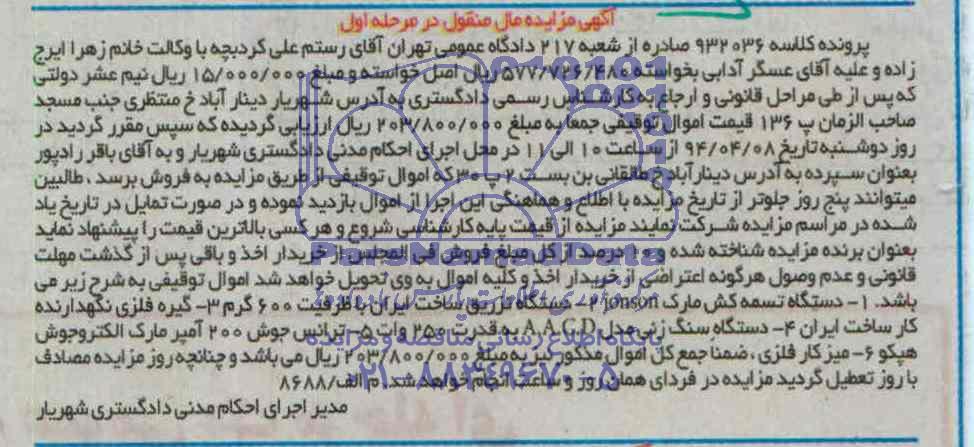 آگهی مزایده مال منقول در مرحله اول
پرونده کلاسه ۹۳۲۰۳۶ صادره از شعبه ۲۱۷ دادگاه عمومی تهران آقای رستم علی کردبچه با وکالت خانم زهرا ایرج
زاده و علیه آقای عسگر آدابی بخواسته ۵۷۷/۷۲۶/۴۸۰ ریال اصل خواسته و مبلغ ۱۵/۰۰۰/۰۰۰ ریال نیم عشر دولتی
که پس از طی مراحل قانونی و ارجاع به کارشناس رسمی دادگستری به آدرس شهریار دینار آباد خ منتظری جنب مسجد
صاحب الزمان پ ۱۳۶ قیمت اموال توقیفی جمعا به مبلغ ۲۰۳/۸۰۰/۰۰۰ ریال ارزیابی گردیده که سپس مقرر گردید در
روز دوشنبه تاریخ ۹۴/۰۴/۰۸ از ساعت ۱۰ الی ۱۱ در محل اجرای احکام مدنی دادگستری شهریار و به آقای باقر رادپور
بعنوان سپرده به آدرس دینارآباد خ طالقانی بن بست ۲ پ ۳۰ که اموال توقیفی از طریق مزایده به فروش برسد ، طالبین
میتوانند پنج روز جلوتر از تاریخ مزایده با اطلاع و هماهنگی این اجرا از اموال بازدید نموده و در صورت تمایل در تاریخ یاد
شده در مراسم مزایده شرکت نمایند مزایده از قیمت پایه کارشناسی شروع و هر کسی بالاترین قیمت را پیشنهاد نماید
بعنوان برنده مزایده شناخته شده و ۱۰ درصد از کل مبلغ فروش فی المجلس از خریدار اخذ و باقی پس از گذشت مهلت
قانونی و عدم وصول هرگونه اعتراضی از خریدار اخذ و کلیه اموال به وی تحویل خواهد شد اموال توقیفی به شرح زیر می
باشد. ۱- دستگاه تسمه کش مارک jonson ۲- دستگاه تزریق ساخت ایران با ظرفیت ۶۰۰ گرم ۳- گیره فلزی نگهدارنده
کار ساخت ایران ۴- دستگاه سنگ زنی مدل A.A.G.D به قدرت ۲۵۰ وات ۵- ترانس جوش ۲۰۰ آمپر مارک الکتروجوش
هپکو ۶- میز کار فلزی ، ضمنا جمع کل اموال مذکور نیز به مبلغ ۲۰۳/۸۰۰/۰۰۰ ریال می باشد و چنانچه روز مزایده مصادف
با روز تعطیل گردید مزایده در فردای همان روز و ساعت انجام خواهد شد. م الف/۸۶۸۸
مدیر اجرای احکام مدنی دادگستری شهریار
پایگاه اطلاع رسانی مناقصه و مزایده
۰۲۱-۸۸۳۴۹۶۷۰-۵